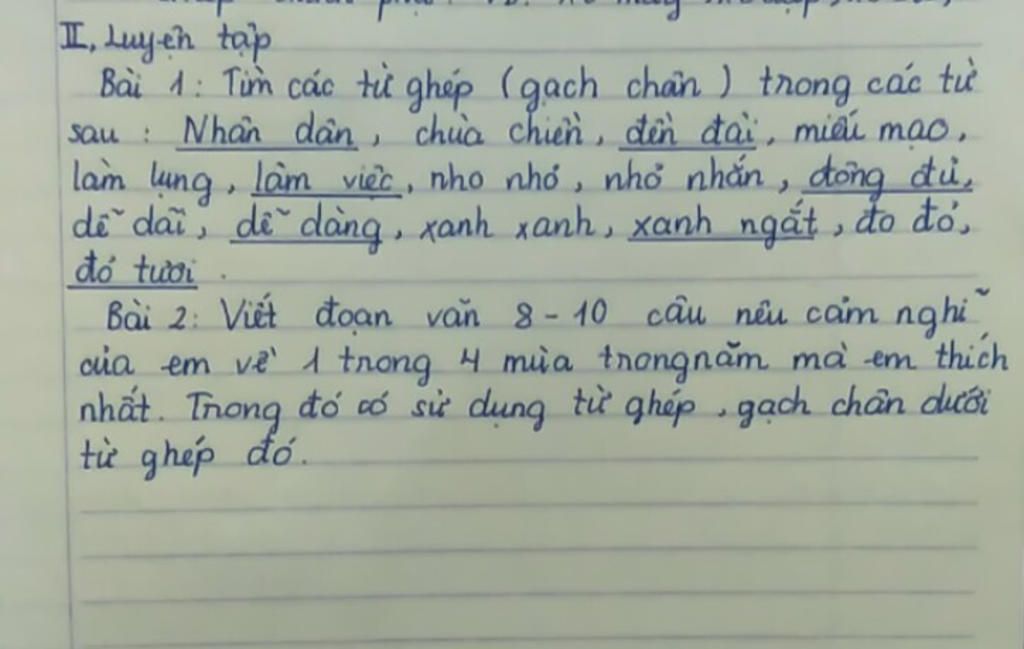 II, Luyện tập
Bài 1: Tìm các từ ghép (gạch chân) trong các từ
sau: Nhân dân, chùa chiền, đền đài, miếu mạo,
làm lụng, làm việc, nho nhỏ, nhỏ nhắn, đông đủ,
dễ dãi, dễ dàng, xanh xanh, xanh ngắt, đo đỏ,
đỏ tươi.
Bài 2: Viết đoạn văn 8-10 câu nêu cảm nghĩ
của em về 1 trong 4 mùa trong năm mà em thích
nhất. Trong đó có sử dụng từ ghép, gạch chân dưới
từ ghép đó.